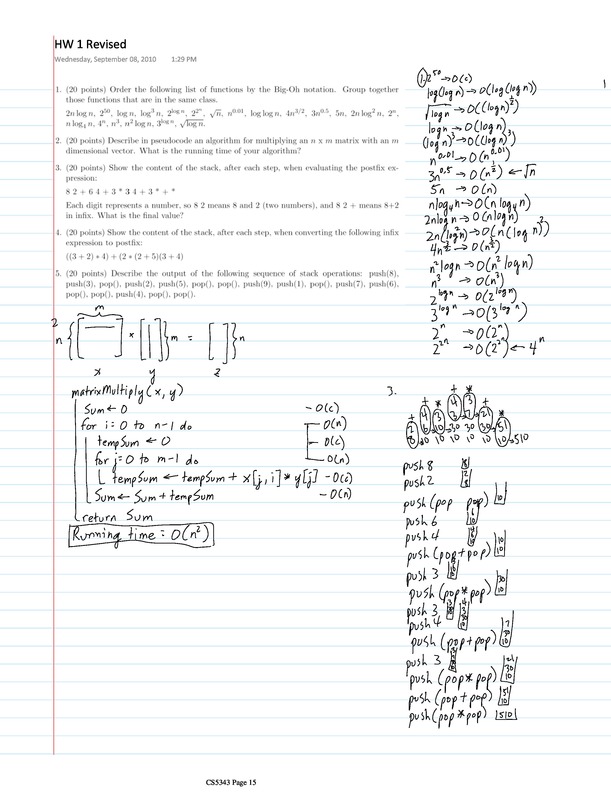 HW 1 Revised
Wednesday, September 08, 2010 1:29 PM
1
1. (20 points) Order the following list of functions by the Big-Oh notation. Group together
those functions that are in the same class.
2n log n, 2^50, log n, log^3 n, 2^log n, 2^2^n, √n, n^0.01, log log n, 4n^3/2, 3n^0.5, 5n, 2n log^2 n, 2^n,
n log_4 n, 4^n, n^3, n^2 log n, 3^log n, √log n.
2. (20 points) Describe in pseudocode an algorithm for multiplying an n x m matrix with an m
dimensional vector. What is the running time of your algorithm?
3. (20 points) Show the content of the stack, after each step, when evaluating the postfix ex-
pression:
8 2 + 6 4 + 3 * 3 4 + 3 * + *
Each digit represents a number, so 8 2 means 8 and 2 (two numbers), and 8 2 + means 8+2
in infix. What is the final value?
4. (20 points) Show the content of the stack, after each step, when converting the following infix
expression to postfix:
((3 + 2) * 4) + (2 * (2 + 5)(3 + 4)
5. (20 points) Describe the output of the following sequence of stack operations: push(8),
push(3), pop(), push(2), push(5), pop(), pop(), push(9), push(1), pop(), push(7), push(6),
pop(), pop(), push(4), pop(), pop().
1. 2^50 → O(c)
log(log n) → O(log(log n))
√log n → O((log n)^1/2)
log n → O(log n)
(log n)^3 → O((log n)^3)
n^0.01 → O(n^0.01)
3n^0.5 → O(n^1/2) ← √n
5n → O(n)
n log_4 n → O(n log_4 n)
2n log n → O(n log n)
2n(log^2 n) → O(n(log n)^2)
4n^3/2 → O(n^3/2)
n^2 log n → O(n^2 log n)
n^3 → O(n^3)
2^log n → O(2^log n)
3^log n → O(3^log n)
2^n → O(2^n)
2^2^n → O(2^2^n) ← 4^n
2
m
n { [ ] * [ ] } m = [ ] } n
x y z
matrixMultiply(x, y)
Sum ← 0 - O(c)
for i = 0 to n-1 do O(n)
tempSum ← 0 O(c)
for j = 0 to m-1 do O(n)
tempSum ← tempSum + x[j, i] * y[j] - O(c)
Sum ← Sum + tempSum - O(n)
return Sum
Running time: O(n^2)
3.
push 8
push 2
push (pop pop) 10
push 6
push 4
push (pop + pop) 10 10
push 3
push (pop * pop) 30 10
push 3
push 4
push (pop + pop) 7 30 10
push 3
push (pop * pop) 21 30 10
push (pop + pop) 51 10
push (pop * pop) 510
CS5343 Page 15